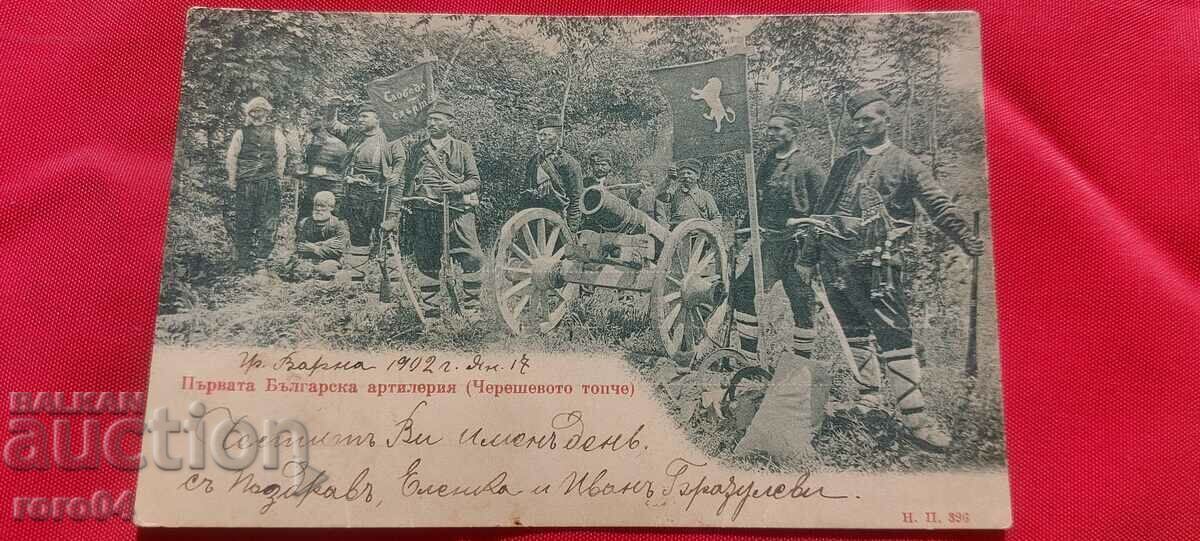 Свобода
смърть
гр. Варна 1902 г. Ян. 17
Първата Българска артилерия (Черешевото топче)
Честитъ Ви именъ день.
съ поздравъ, Еленка и Иванъ Бразулеви.
Н. П. 396
BALKAN
auction
roro04